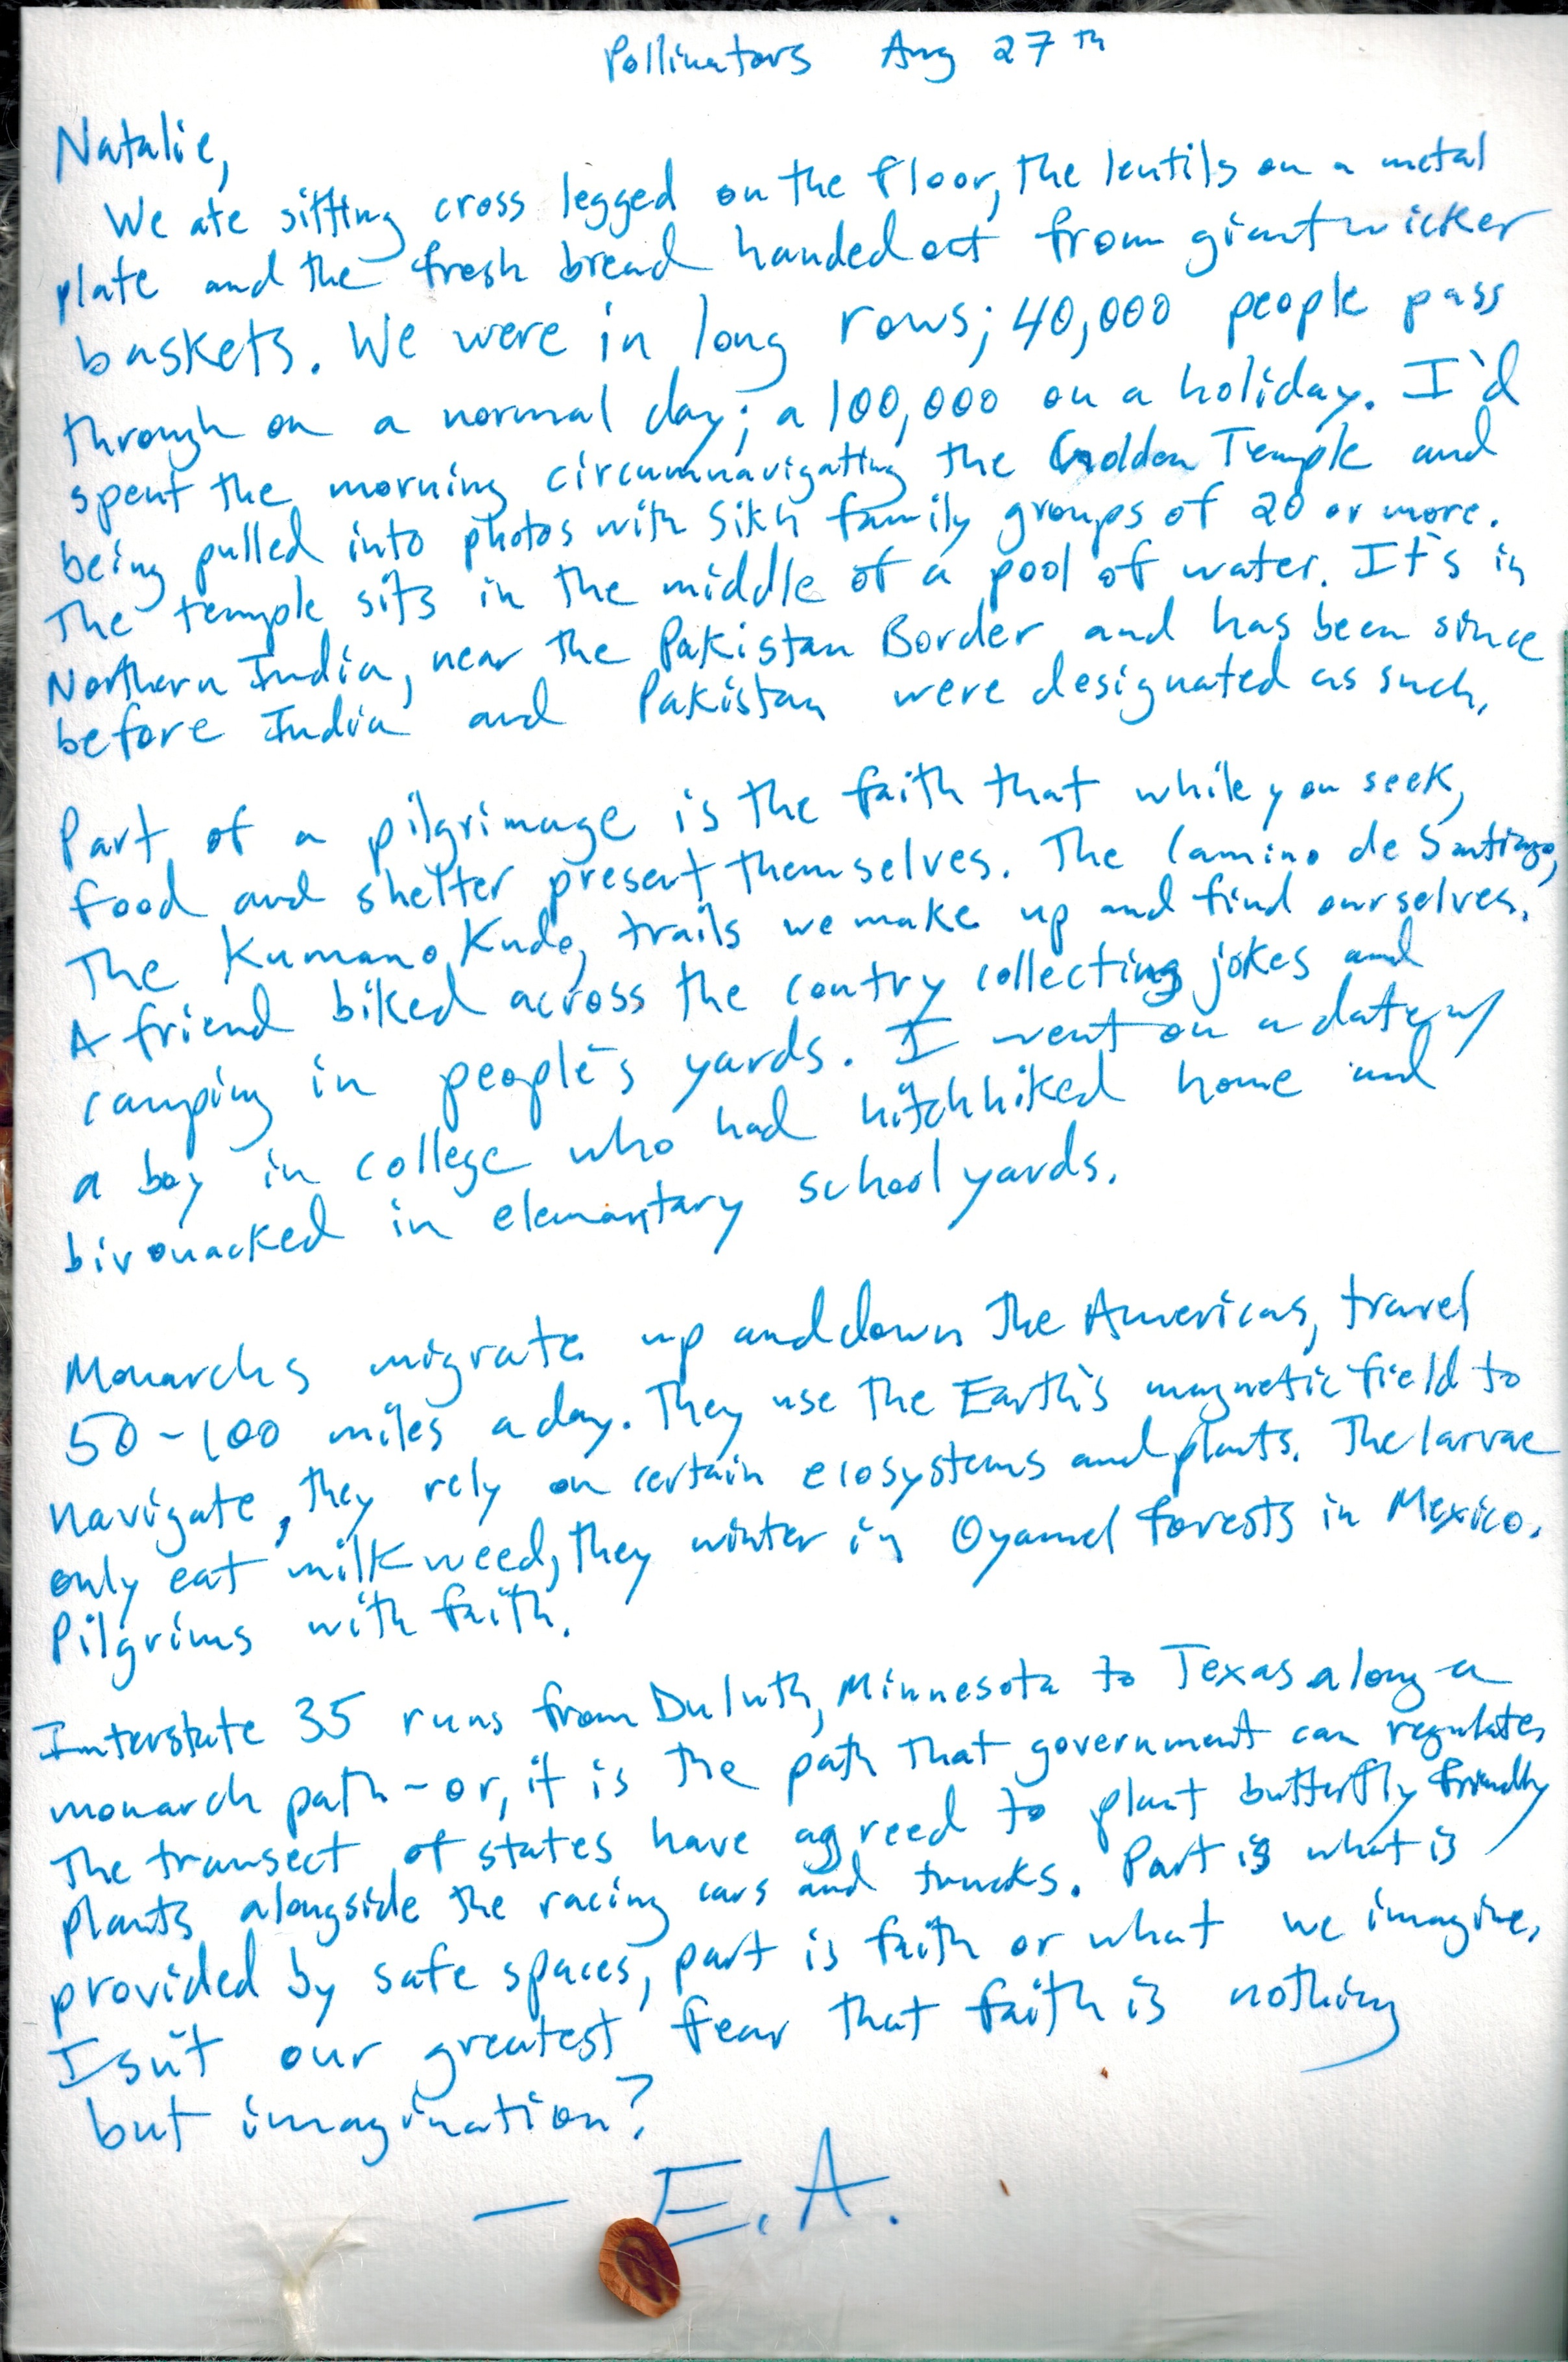 Pollinators Aug 27th
Natalie,
We ate sitting cross legged on the floor, the lentils on a metal
plate and the fresh bread handed out from giant wicker
baskets. We were in long rows; 40,000 people pass
through on a normal day; a 100,000 on a holiday. I'd
spent the morning circumnavigating the Golden Temple and
being pulled into photos with Sikh family groups of 20 or more.
The temple sits in the middle of a pool of water. It's in
Northern India, near the Pakistan Border and has been since
before India and Pakistan were designated as such.
Part of a pilgrimage is the faith that while you seek,
food and shelter present themselves. The Camino de Santiago,
The Kumano Kudo, trails we make up and find ourselves.
A friend biked across the contry collecting jokes and
camping in people's yards. I went on a date w/
a boy in college who had hitchhiked home and
bivouacked in elementary school yards.
Monarchs migrate up and down the Americas, travel
50-100 miles a day. They use the Earth's magnetic field to
navigate, they rely on certain ecosystems and plants. The larvae
only eat milkweed, they winter in Oyamel forests in Mexico.
Pilgrims with faith.
Interstate 35 runs from Duluth, Minnesota to Texas along a
monarch path - or, it is the path that government can regulates
The transect of states have agreed to plant butterfly friendly
plants alongside the racing cars and trucks. Part is what is
provided by safe spaces, part is faith or what we imagine.
Isn't our greatest fear that faith is nothing
but imagination?
— E.A.